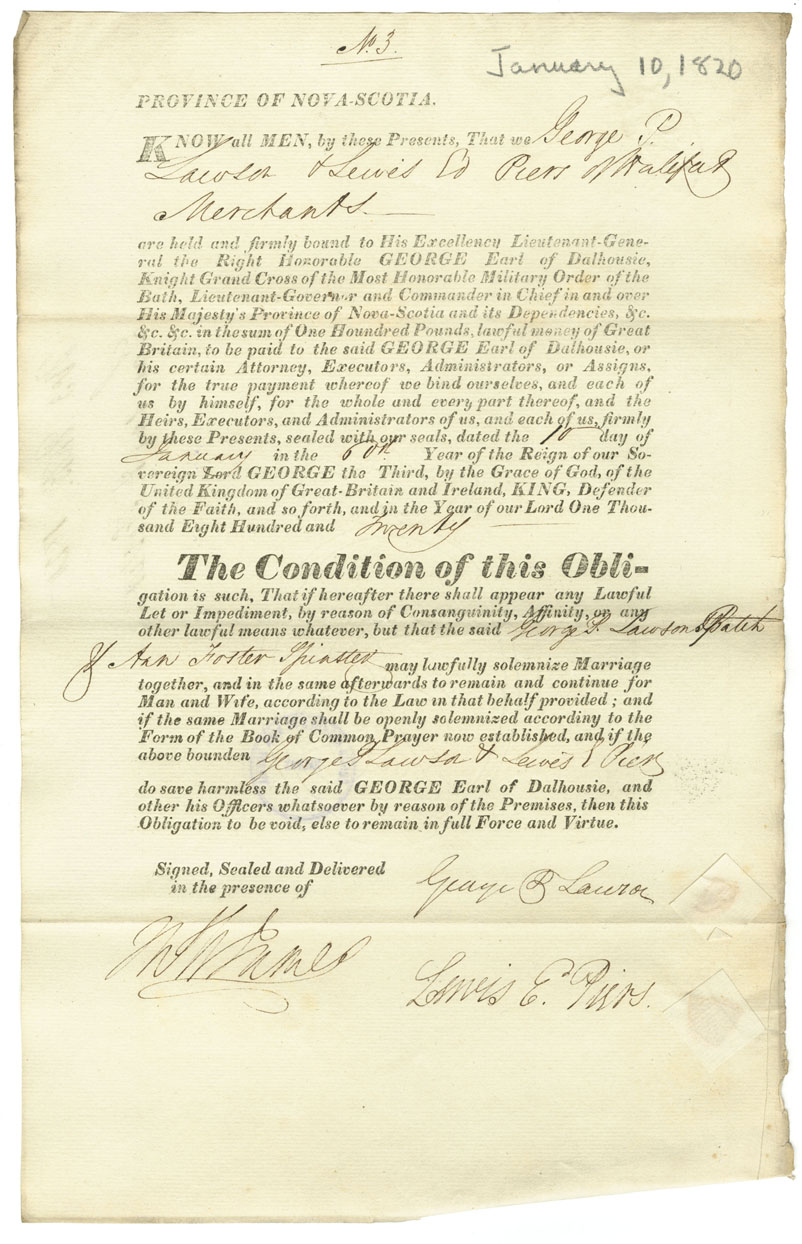 No. 3.
January 10, 1820
PROVINCE OF NOVA-SCOTIA.
KNOW all MEN, by these Presents, That we George P.
Lawson & Lewis Ed Piers of Halifax
Merchants.
are held and firmly bound to His Excellency Lieutenant-Gene-
ral the Right Honorable GEORGE Earl of Dalhousie,
Knight Grand Cross of the Most Honorable Military Order of the
Bath, Lieutenant-Governor and Commander in Chief in and over
His Majesty's Province of Nova-Scotia and its Dependencies, &c.
&c. &c. in the sum of One Houndred Pounds, lawful money of Great
Britain, to be paid to the said GEORGE Earl of Dalhousie, or
his certain Attorney, Executors, Administrators, or Assigns,
for the true payment whereof we bind ourselves, and each of
us by himself, for the whole and every part thereof, and the
Heirs, Executors, and Administrators of us, and each of us, firmly
by these Presents, sealed with our seals, dated the 10 day of
January in the 60th Year of the Reign of our So-
vereign Lord GEORGE the Third, by the Grace of God, of the
United Kingdom of Great-Britain and Ireland, KING, Defender
of the Faith, and so forth, and in the Year of our Lord One Thou-
sand Eight Hundred and twenty
The Condition of this Obli-
gation is such, That if hereafter there shall appear any Lawful
Let or Impediment, by reason of Consanguinity, Affinity, or any
other lawful means whatever, but that the said George P. Lawson Batch
& Ann Foster Spinster may lawfully solemnize Marriage
together, and in the same afterwards to remain and continue for
Man and Wife, according to the Law in that behalf provided; and
if the same Marriage shall be openly solemnized accordiny to the
Form of the Book of Common Prayer now established, and if the
above bounden George P Lawson & Lewis E Piers
do save harmless the said GEORGE Earl of Dalhousie, and
other his Officers whatsoever by reason of the Premises, then this
Obligation to be void, else to remain in full Force and Virtue.
Signed, Sealed and Delivered
in the presence of
George P Lawson
Lewis E. Piers.